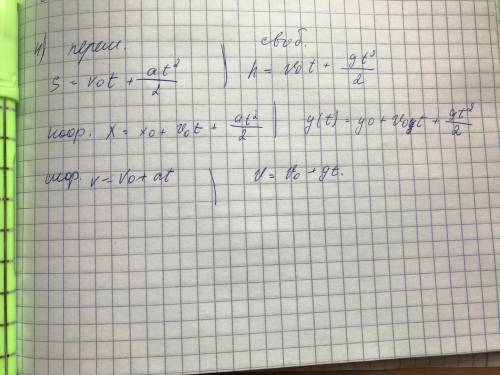 4) перем. свод.
S = v₀t + at²/2 ) h = v₀t + gt²/2
коор. X = x₀ + v₀t + at²/2 | y(t) = y₀ + v₀yt + gt²/2
скор. v = v₀ + at ) v = v₀ + gt.